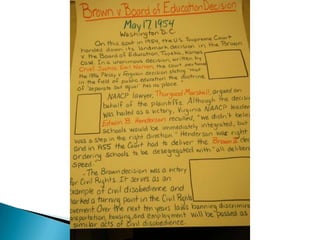 Brown v Board of Education Decision
May 17 1954
Washington D.C.
On this spot in 1954, the U.S. Supreme Court
handed down its landmark decision in the Brown
v. the Board of Education, Topeka, Kansas
Case. In a unanimous decision, written by
Chief Justice Earl Warren, the Court overturned
the 1896 Plessy v Ferguson decision stating "that
in the field of public education the doctrine
of 'separate but equal' has no place."
NAACP lawyer, Thurgood Marshall, argued on
behalf of the plaintiffs. Although the decision
was hailed as a victory, Virginia NAACP leader
Edwin B. Henderson recalled, "we didn't believe
schools would be immediately integrated, but
was a step in the right direction." Henderson was right
and in 1955 the Court had to deliver the Brown 2
ordering schools to be desegregated with "all deliberate
speed."
- The Brown decision was a victory
for Civil Rights. It serves as an
example of Civil disobedience and
marked a turning point in the Civil Rights
movement. Over the next ten years laws banning discrimination
transportation, housing, and employment will be passed as
similar acts of Civil disobedience.